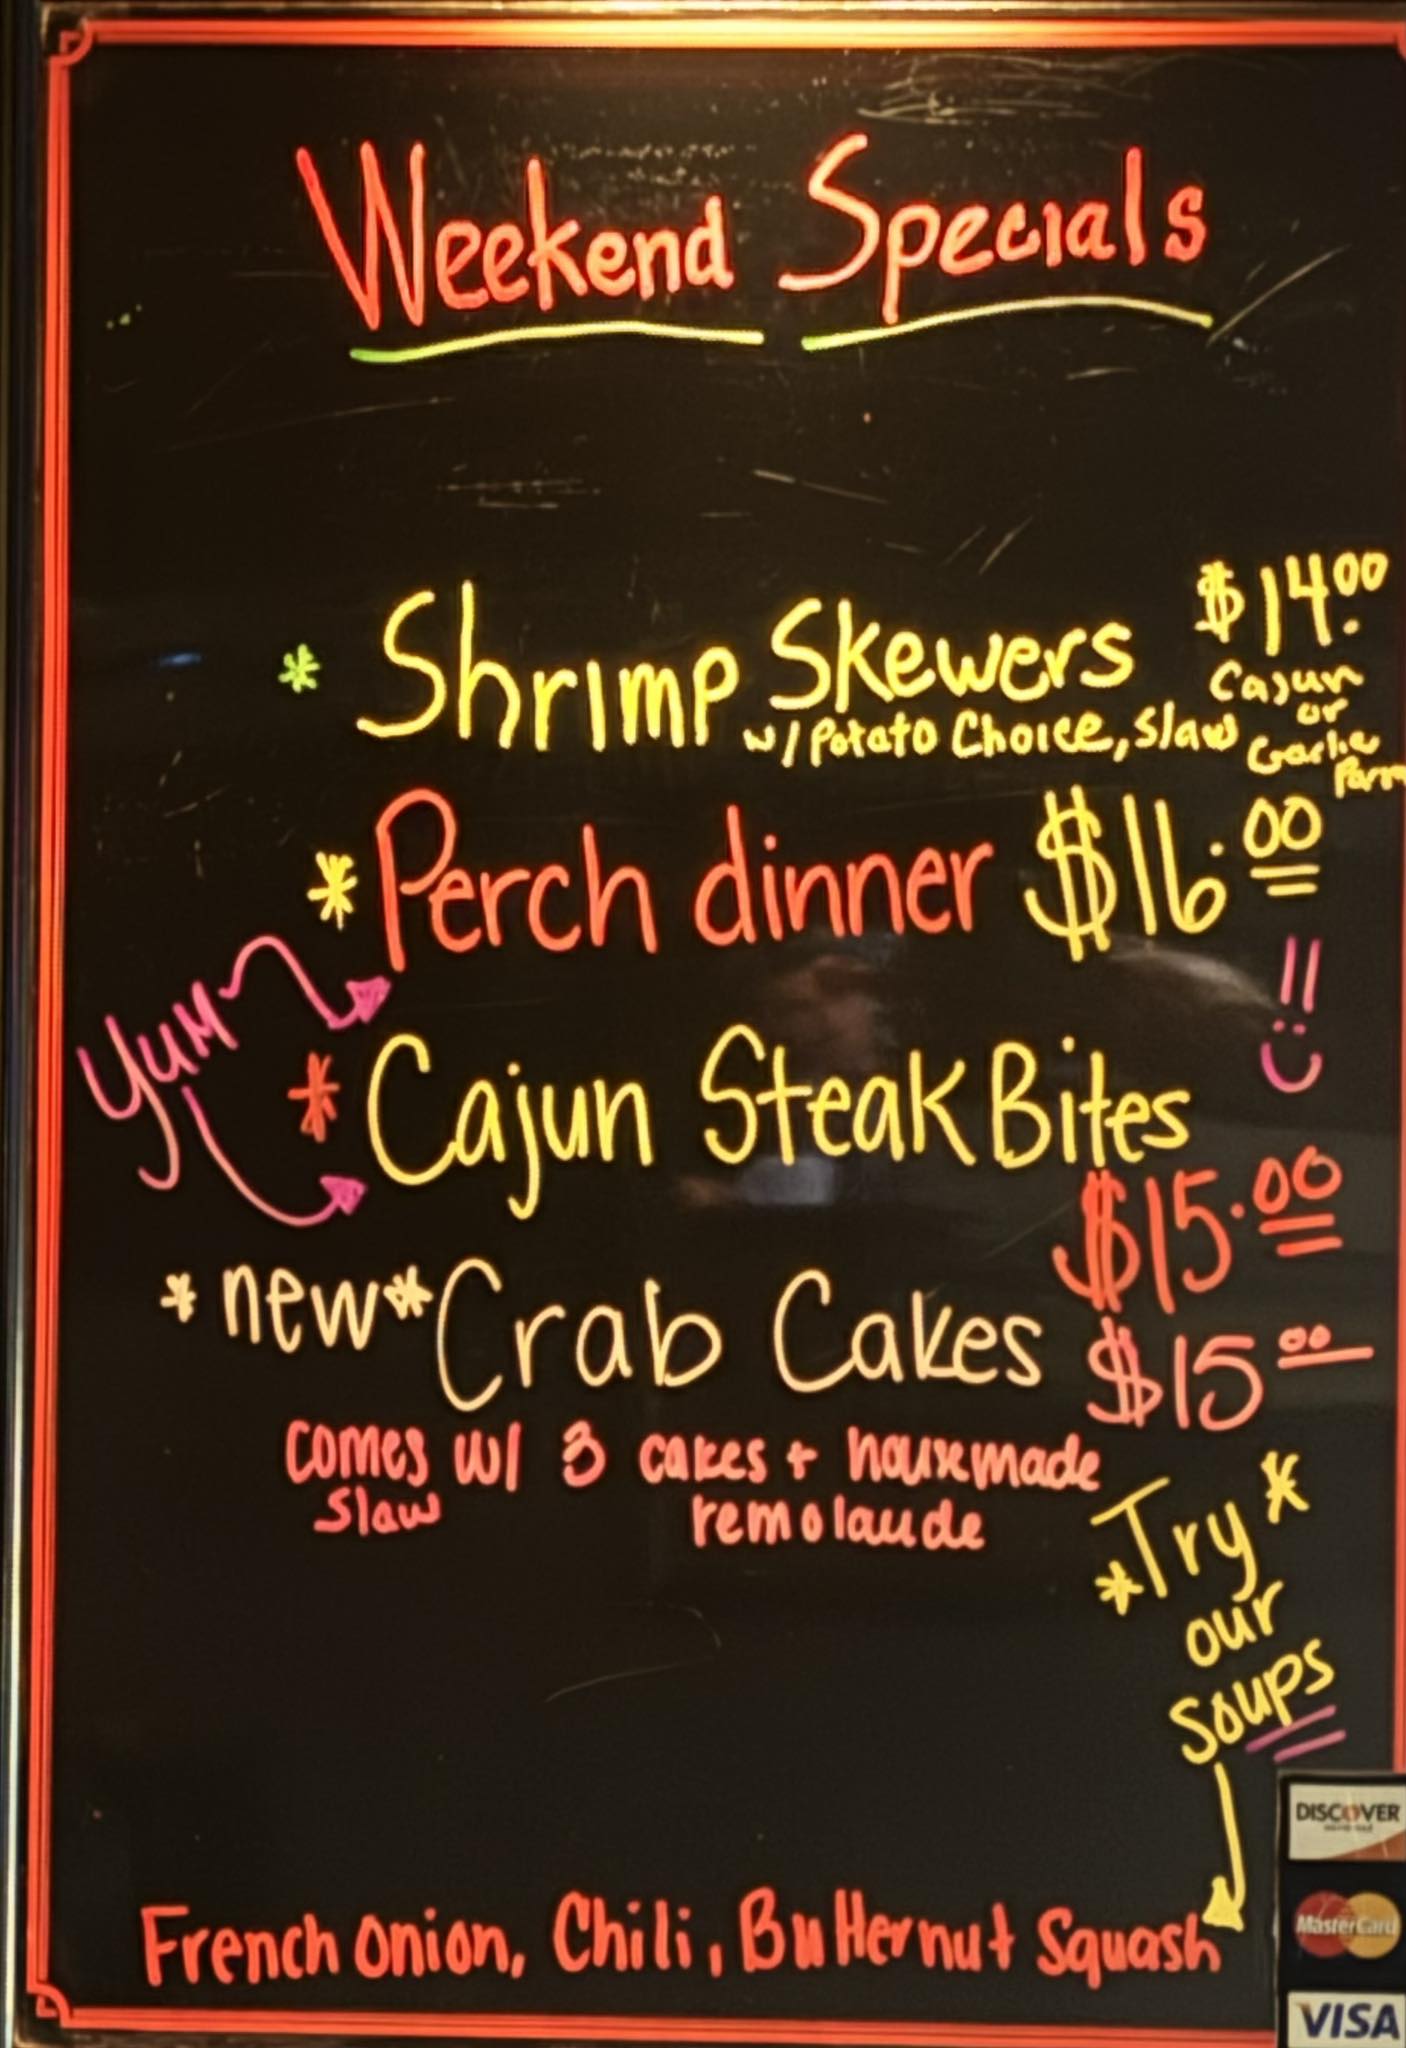 Weekend Specials
* Shrimp Skewers $14.00
w/ Potato Choice, Slaw
Cajun
or
Garlic
Parm
* Perch dinner $16.00
Yum
* Cajun Steak Bites
$15.00
*new* Crab Cakes $15 00
comes w/ 3 cakes + housemade
slaw remolaude
*Try*
our
Soups
French Onion, Chili, Butternut Squash
DISCOVER
MasterCard
VISA